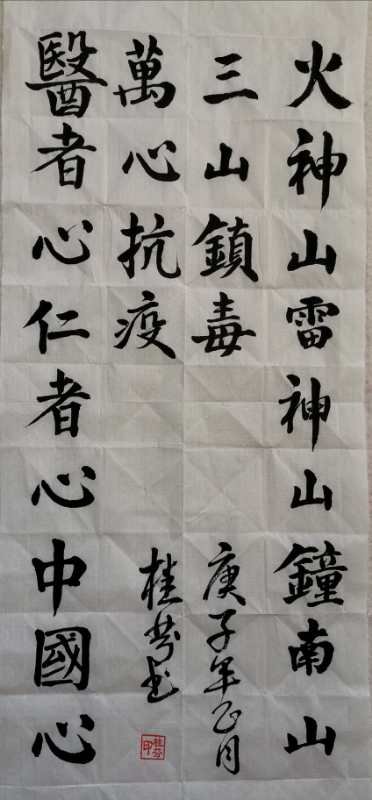 火神山雷神山鐘南山
三山鎮毒
醫者心仁者心中國心
萬心抗疫
庚子年正月
桂芬书
桂芬印